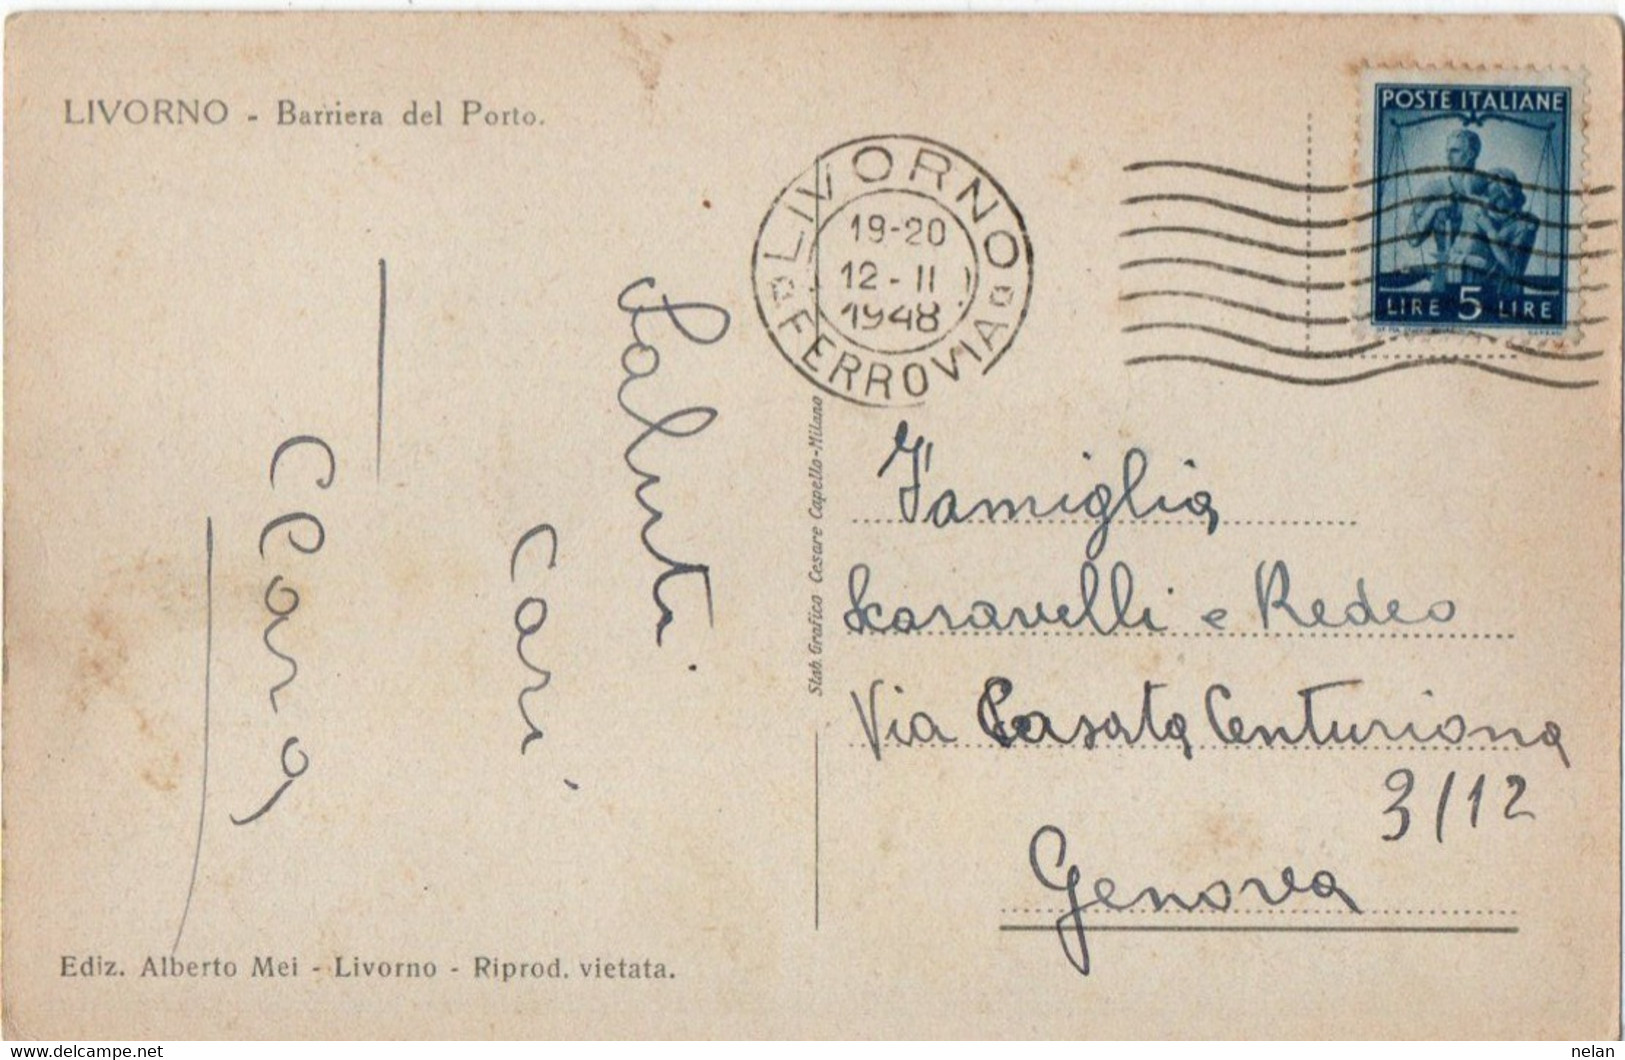 LIVORNO - Barriera del Porto.
POSTE ITALIANE
LIRE 5 LIRE
LIVORNO
19-20
12-II
1948
FERROVIA
Saluti
cari
Clara
Stab. Grafico Cesare Capello-Milano
Famiglia
Scaravelli e Redeo
Via Casata Centuriona
3/12
Genova
Ediz. Alberto Mei - Livorno - Riprod. vietata.
www.delcampe.net
nelan